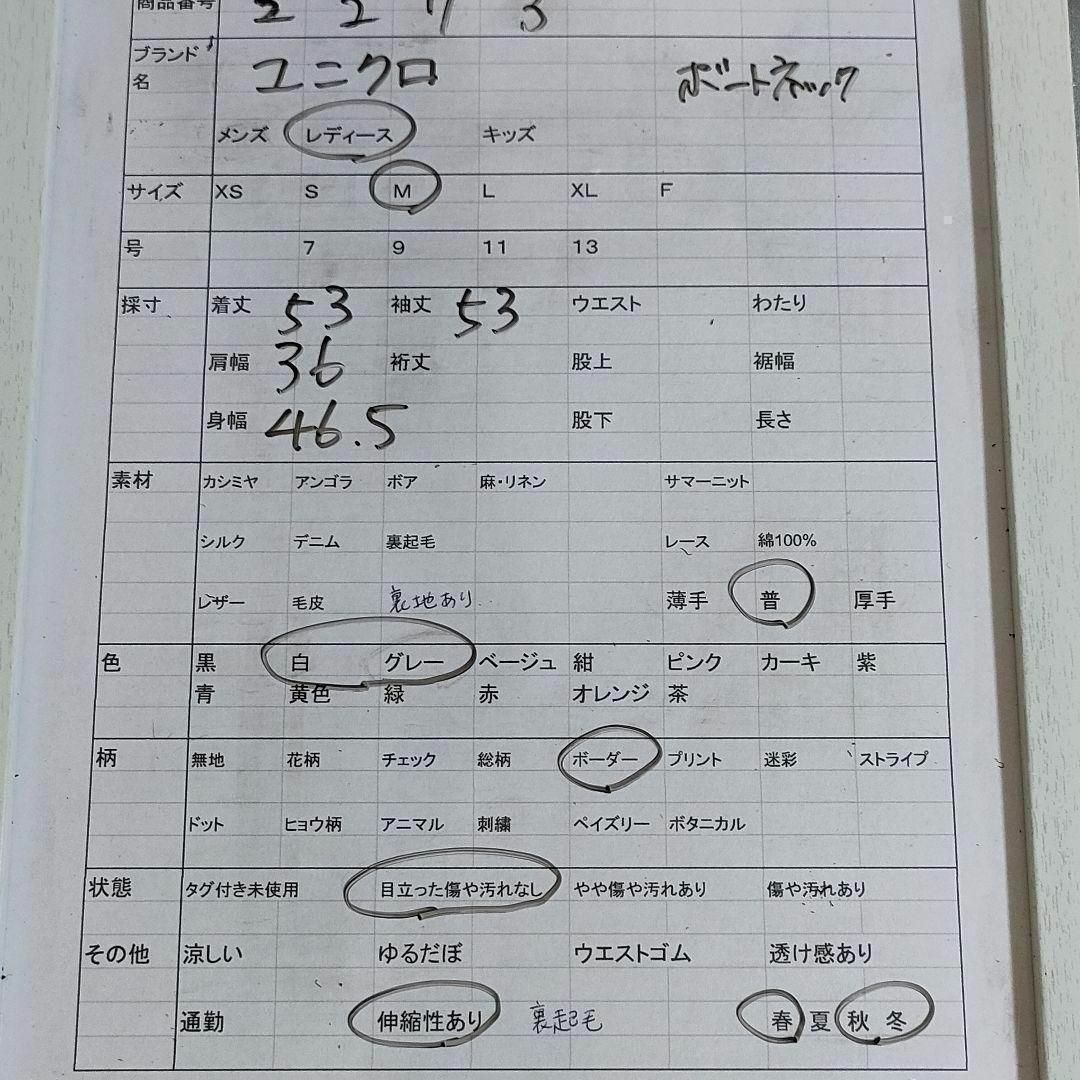 商品番号 2 2 7 3
ブランド名 ユニクロ ボートネック
メンズ レディース キッズ
サイズ XS S M L XL F
号 7 9 11 13
採寸 着丈 53 袖丈 53 ウエスト わたり
肩幅 36 裄丈 股上 裾幅
身幅 46.5 股下 長さ
素材 カシミヤ アンゴラ ボア 麻・リネン サマーニット
シルク デニム 裏起毛 レース 綿100%
レザー 毛皮 裏地あり 薄手 普 厚手
色 黒 白 グレー ベージュ 紺 ピンク カーキ 紫
青 黄色 緑 赤 オレンジ 茶
柄 無地 花柄 チェック 総柄 ボーダー プリント 迷彩 ストライプ
ドット ヒョウ柄 アニマル 刺繍 ペイズリー ボタニカル
状態 タグ付き未使用 目立った傷や汚れなし やや傷や汚れあり 傷や汚れあり
その他 涼しい ゆるだぼ ウエストゴム 透け感あり
通勤 伸縮性あり 裏起毛 春 夏 秋 冬